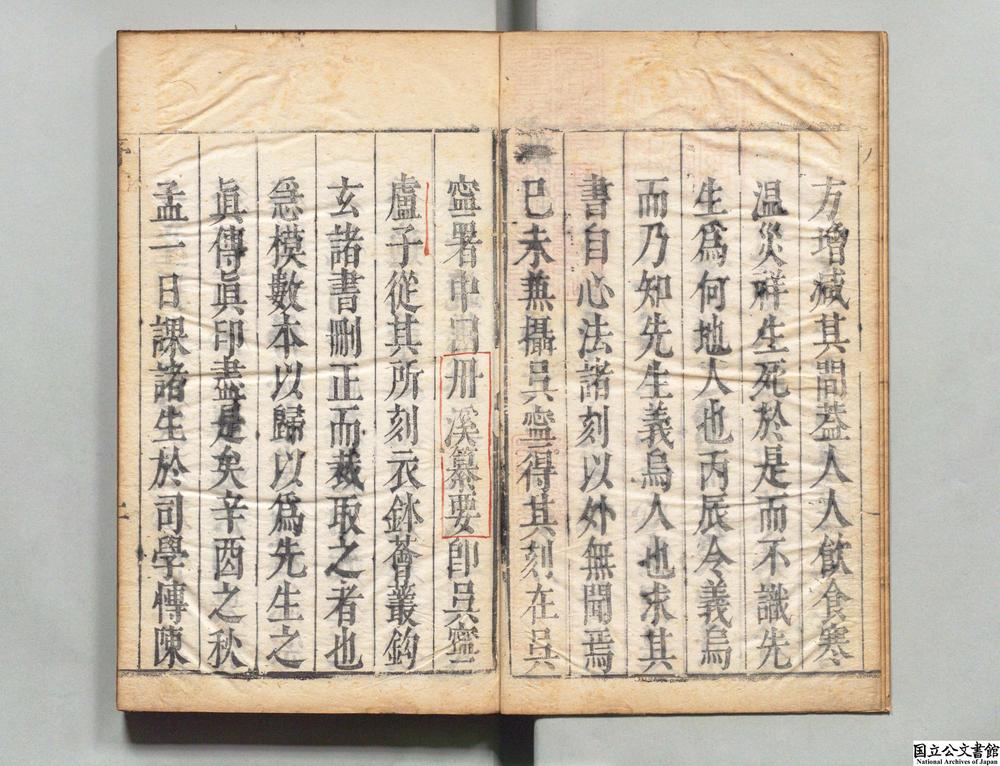 方增減其間葢人人飲食寒
温災祥生死於是而不識先
生爲何地人也丙辰令義烏
而乃知先生義烏人也求其
書自心法諸刻以外無聞焉
己未兼攝吳寧得其刻在吳
寧署中曰丹溪纂要卽吳寧
盧子從其所刻衣鉢薈叢鈎
玄諸書刪正而裁取之者也
急模數本以歸以爲先生之
眞傳眞印盡是矣辛酉之秋
孟一日課諸生於司學博陳
国立公文書館
National Archives of Japan